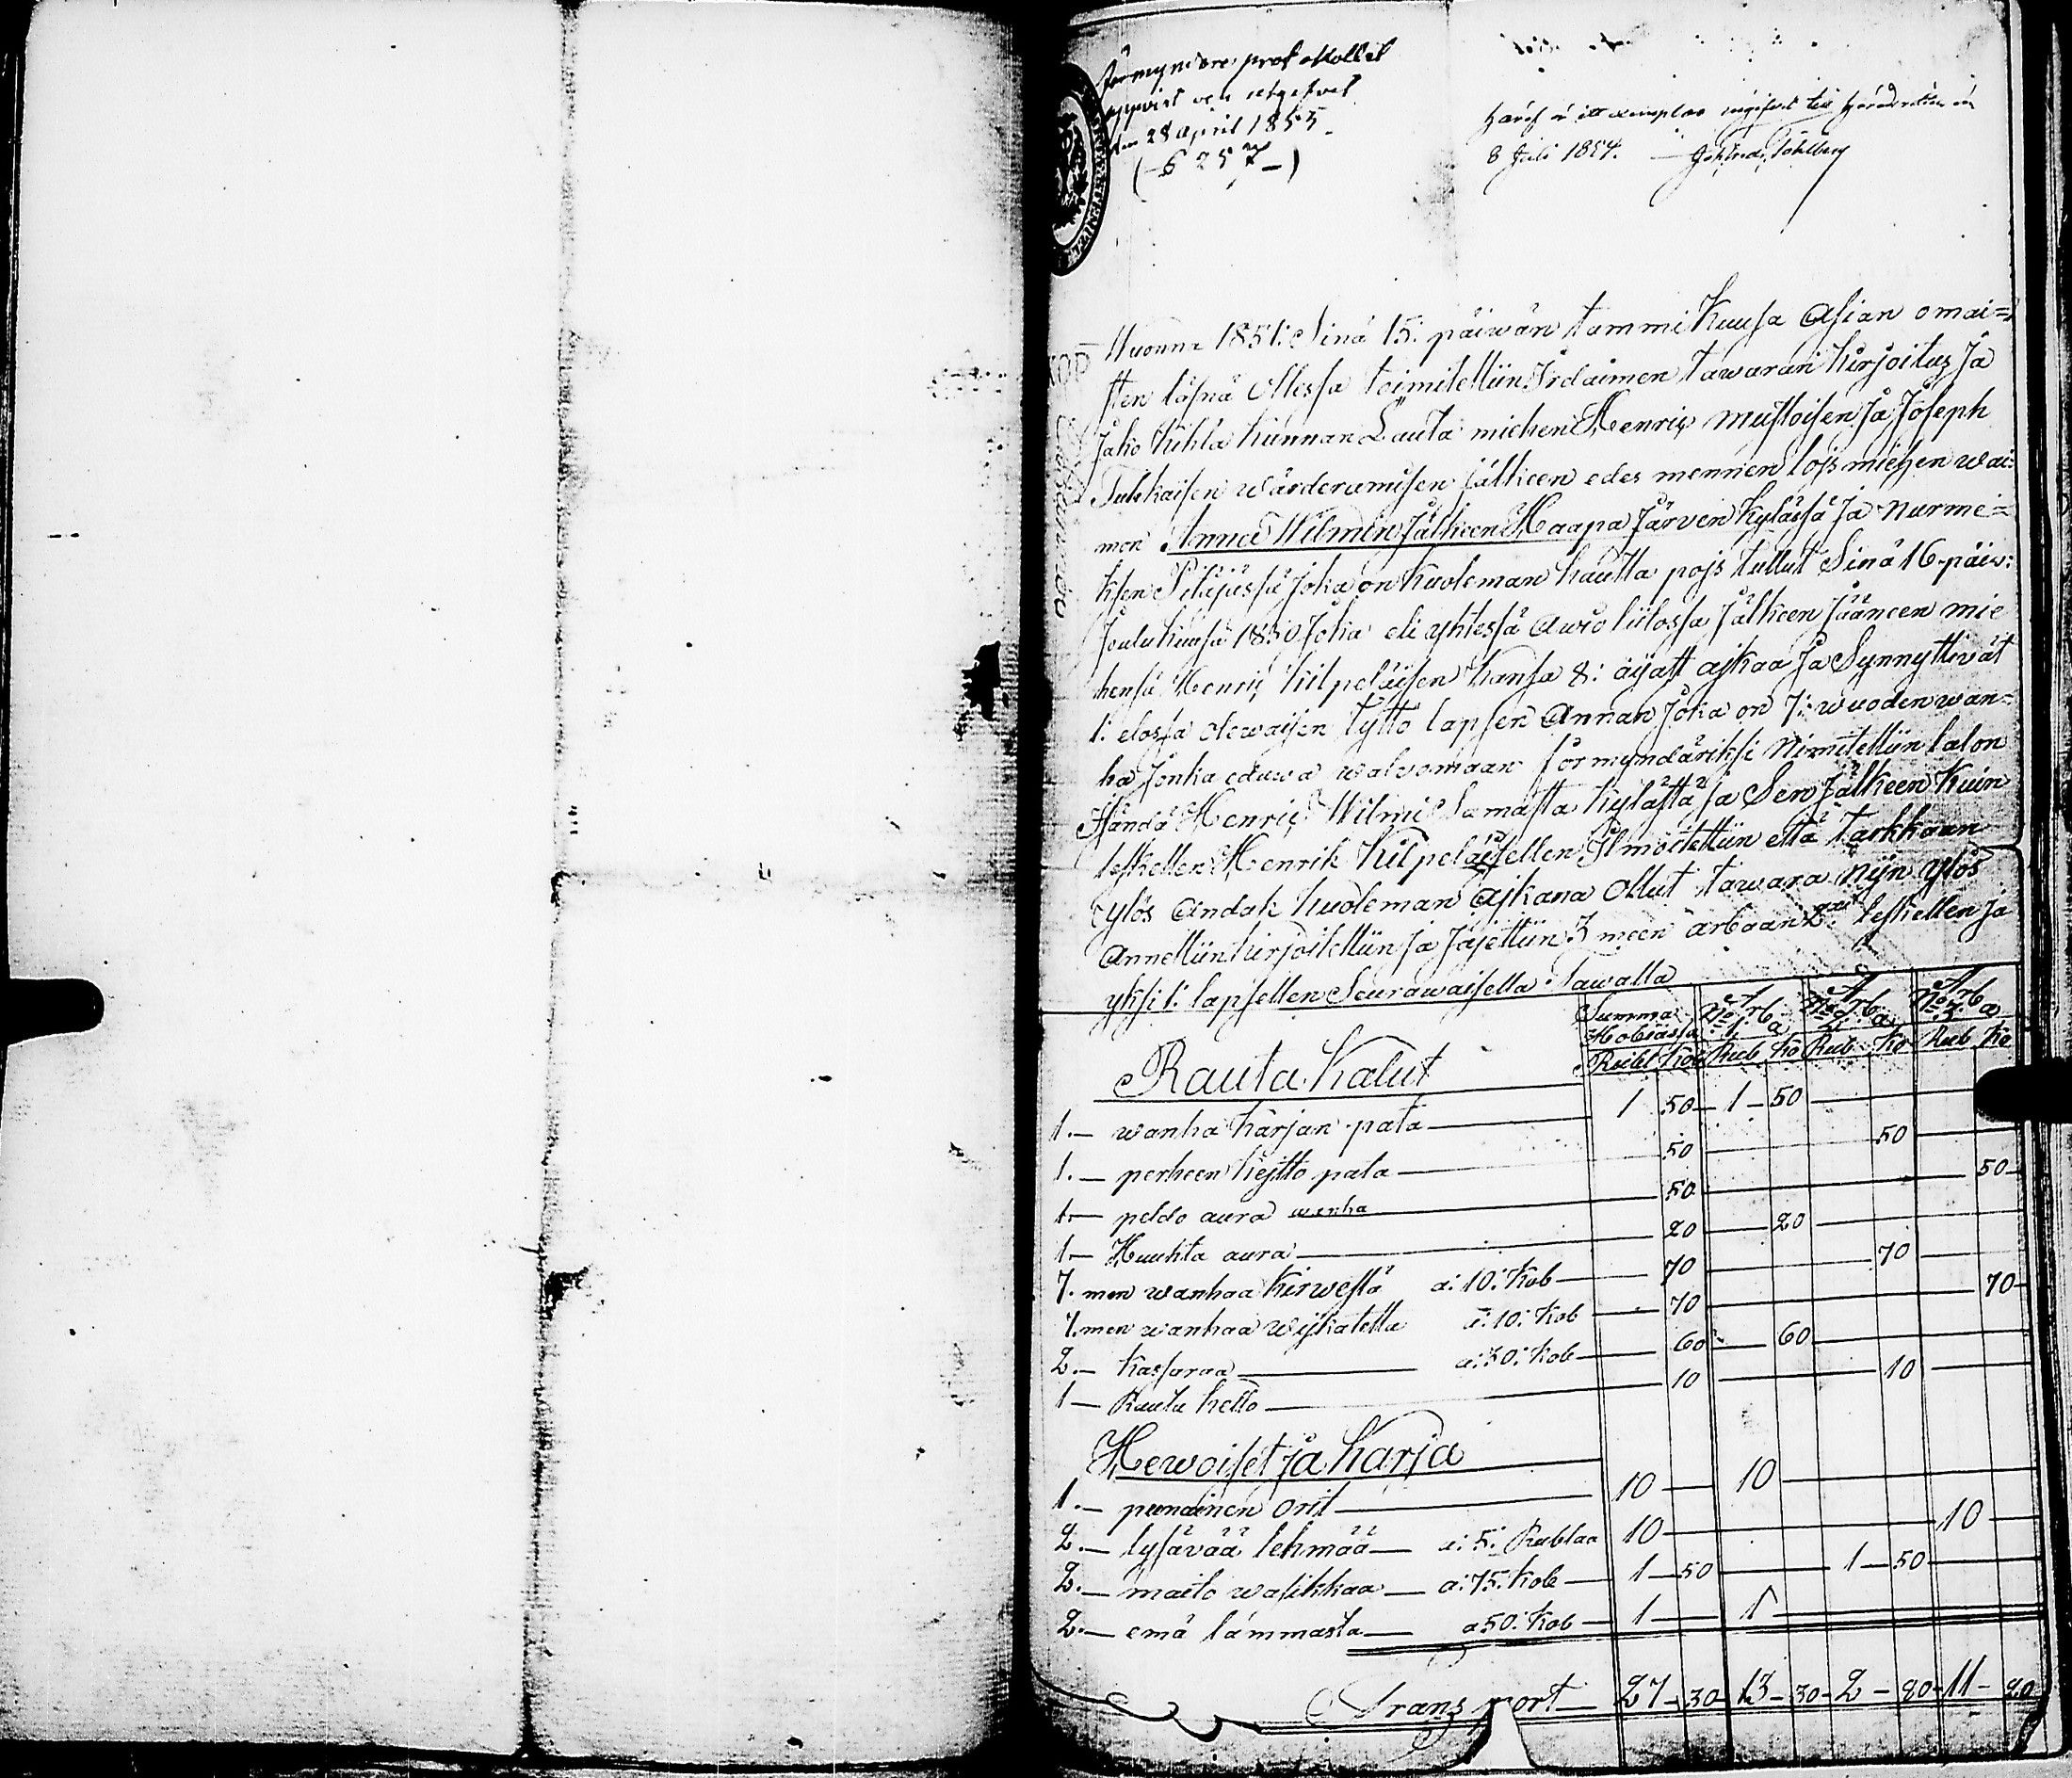 Förmyndare prot okollet
uppvist och utgifvet
den 28 April 1855
(- § 257 -)
häraf är ett exemplar ingifvet till häradsrätten den
8 Juli 1854.
Wuonna 1851: Sinä 15: päiwän tammi Kuusa Asian omai=
sten läsnä ollessa toimitettiin Irdaimen tawaran kirjoitus Ja
Jako kihla kunnan Lauta miehen Henric Mustoisen Ja Joseph
Tukkaisen wärderamisen jälkeen edes mennen lojs miehen wai:
mon Anna Wilmin Jälkeen Haapa Järven Kylässä Ja Nurme=
ksen Pitäjässä Joka on Kuoleman kautta pojs tullut Sinä 16-päiv:
Joulu kuusa 1850 Joka eli yhtessä awio liitossa Jälkeen Jääneen mie
hensä Henric kilpeläisen kansa 8: ajast ajkaa Ja Synnyttivät
1: elossa olewaisen tyttö lapsen Annan Joka on 7: wuoden wan=
ha Jonka eduwa walvomaan förmyndäriksi Nimitettiin talon
Isändä Henric Wilmi Samasta kylästä Ja Sen Jälkeen Kuin
leskellen Henrik kilpeläisellen Ilmoitettiin että tarkkaan
ylös Andak kuoleman Ajkana Ollut tawara Nijn ylös
Annettiin kirjoitettiin Ja Jajettiin 3 meen arbaan leskellen Ja
yksi 1: lapsellen Seurawaisella tawalla
Summa Hobiassa Arba No 1: Arba No 2: Arba No 3:
Rubl Kob Rub Ko Rub Ko Rub Ko
Rauta Kalut
1.— wanha karjan pata — 1 50 — 1 — 50
1.— perheen kejtto pata — 50 — 50
1— peldo aura wanha — 50 — 50
1— Huuhta aura — 20 — 20
7. men wanhaa kirwestä a: 10: Kob — 70 — 70
7. men wanhaa wijkatetta a: 10: Kob — 70 — 70
2.— kassaraa — a: 30: Kob — 60 — 60
1— Rauta kello — 10 — 10
Hewoiset ja karja
1.— punainen orit — 10 — 10
2.— lysävää lehmää — a: 5: Rublaa 10 — 10
2.— maito wasikkaa — a: 75: Kob — 1 — 50 — 1 — 50
2.— emä lammasta — a 50: Kob — 1 — 1
Transport — 27 - 30 - 13 - 30 - 2 - 80 - 11 - 20